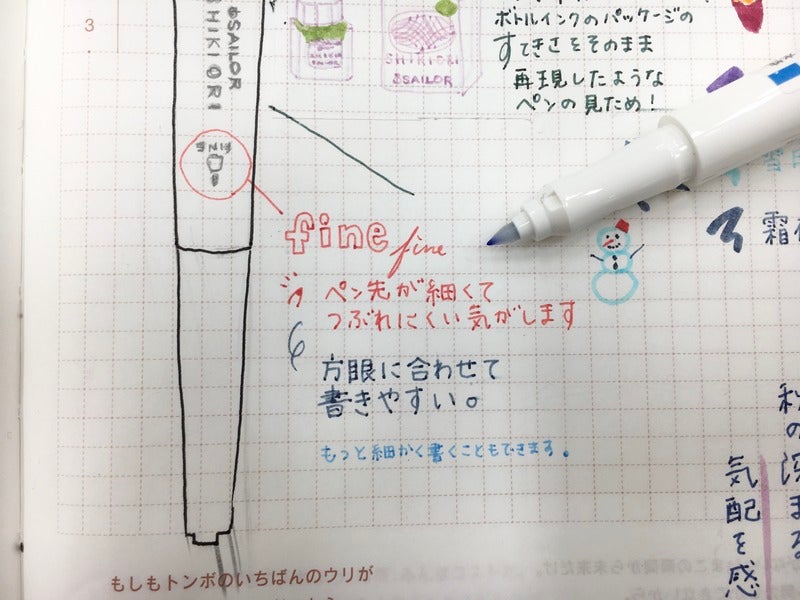 3
&SAILOR
SHIKIORI
SHIKIORI
&SAILOR
ボトルインクのパッケージの
すてきさをそのまま
再現したような
ペンの見ため!
fine fine
ペン先が細くて
つぶれにくい気がします
方眼に合わせて
書きやすい。
もっと細かく書くこともできます。
霜
深まる
気配を感
もしもトンボのいちばんのウリが